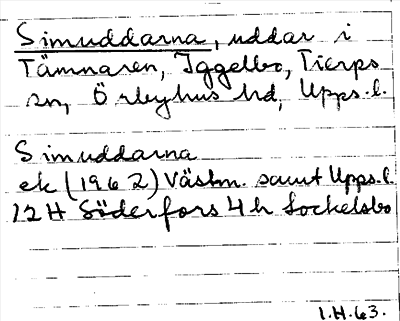 Simuddarna, uddar i
Tämnaren, Iggelbo, Tierps
sn, Örbyhus hd, Upps.l.
Simuddarna
ek (1962) Västm. samt Upps.l.
12H Söderfors 4h Sockelsbo
I.H.63.